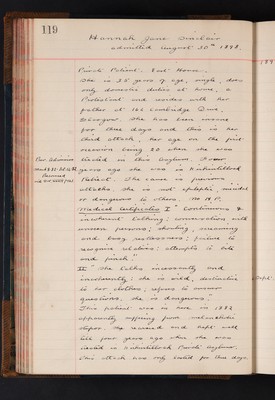 119
Hannah Jane Sinclair
admitted August 30th 1898.
Private Patient. East House.
She is 35 years of age, single, does
only domestic duties at home, a
Protestant and resides with her
father at 121 Cambridge Drive,
Glasgow. She has been insane
for three days and this is her
third attack, her age on the first
occasion being 20 when she was
treated in this Asylum. Four
years ago she was a Kirkintilloch
Patient. The cause is previous
attacks. She is not epileptic, suicidal
or dangerous to others. No H.P.
Medical Certificates I " Continuous &
incoherent talking: conversation with
unseen persons; shouting, screaming
and busy restlessness; failure to
recognise relations; attempts to bite
and pinch"
II " She talks incessantly and
incoherently; she is wild, destructive
to her clothes, refuses to answer
questions. She is dangerous."
This patient was in here in 1882
apparently suffering from melancholic
stupor. She recovered and kept well
till four years ago when she was
treated in Kirkintilloch Private Asylum.
This attack has only lasted for three days.
For Admission